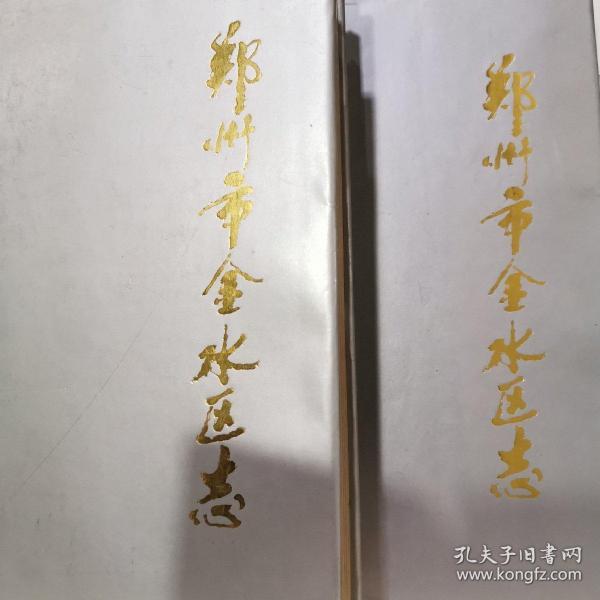 郑州市金水区志
郑州市金水区志
孔夫子旧書网
www.kongfz.com